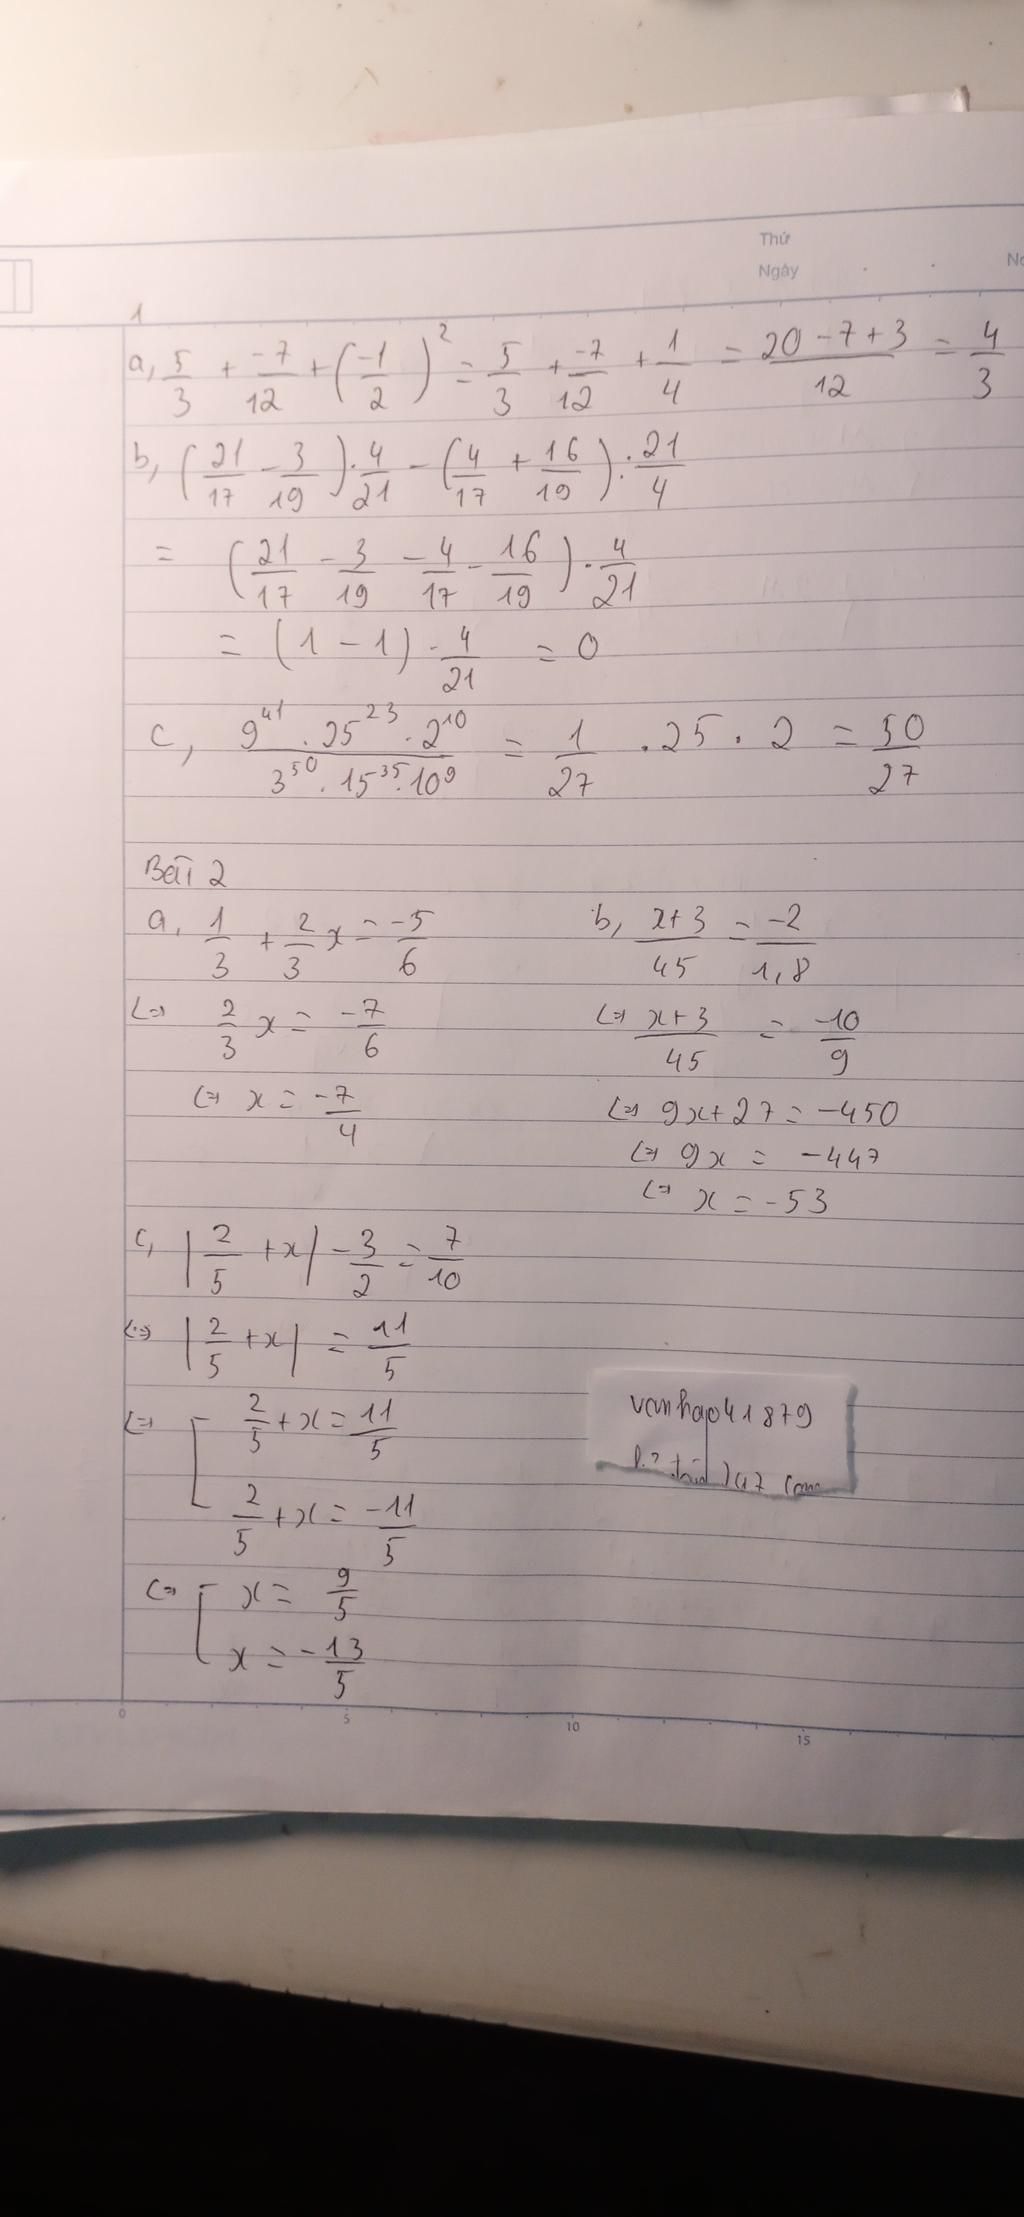 Thứ
Ngày
No
1
a, 5/3 + -7/12 + (-1/2)^2 = 5/3 + -7/12 + 1/4 = 20-7+3/12 = 4/3
b, (21/17 - 3/19) . 4/21 - (4/17 + 16/19) : 21/4
= (21/17 - 3/19 - 4/17 - 16/19) . 4/21
= (1 - 1) . 4/21 = 0
c, 9^41 . 25^23 . 2^10 / 3^50 . 15^35 . 10^9 = 1/27 . 25 . 2 = 50/27
Bài 2
a, 1/3 + 2/3 x = -5/6
<=> 2/3 x = -7/6
<=> x = -7/4
b, x+3/45 = -2/1,8
<=> x+3/45 = -10/9
<=> 9x+27 = -450
<=> 9x = -447
<=> x = -53
c, |2/5 + x| - 3/2 = 7/10
<=> |2/5 + x| = 11/5
<=> [ 2/5 + x = 11/5
2/5 + x = -11/5
<=> [ x = 9/5
x = -13/5
vanhao41879
247 com
0 5 10 15